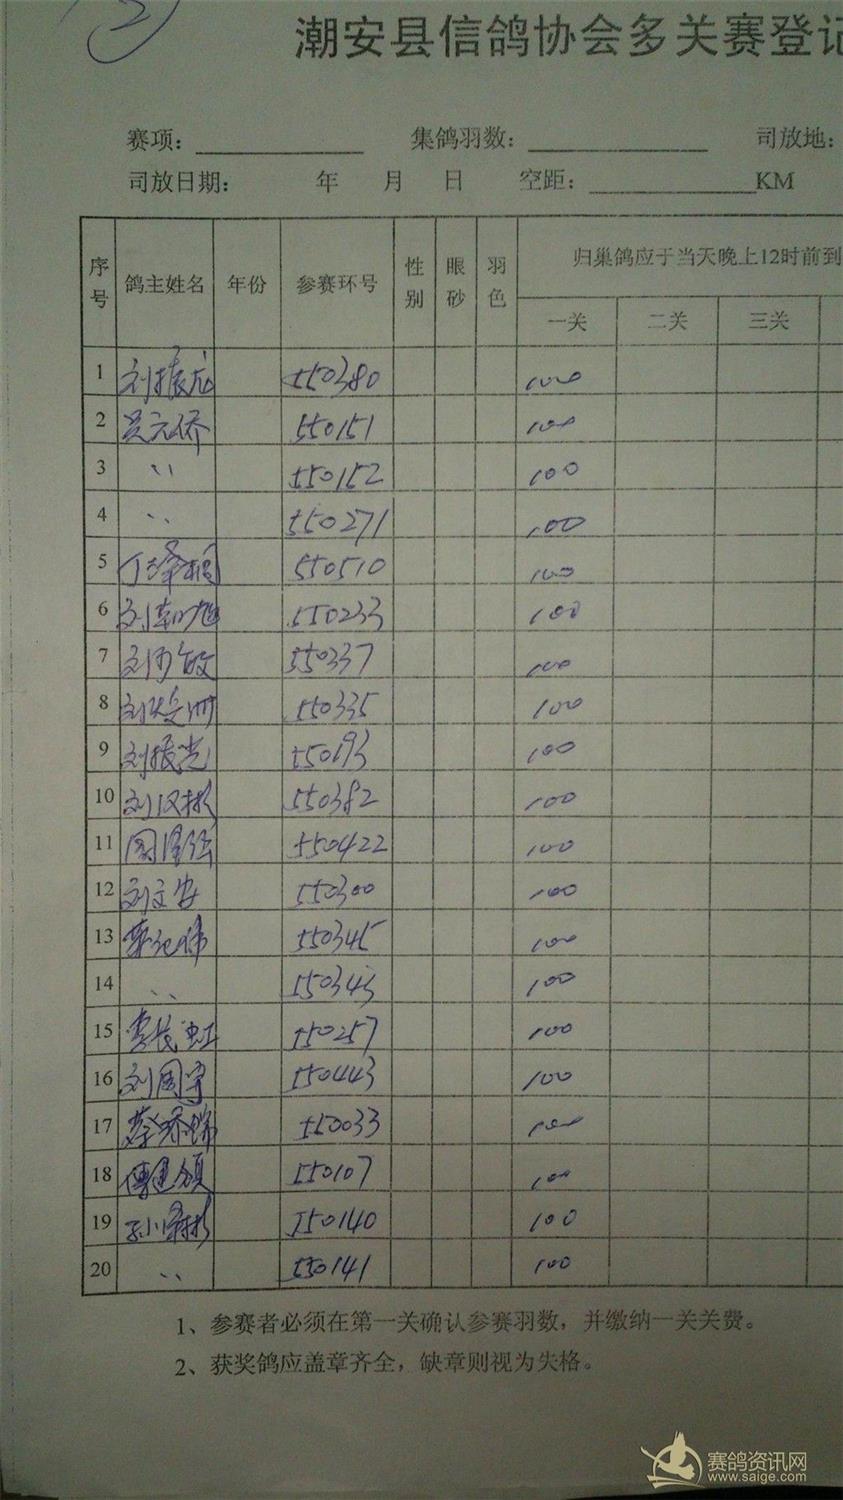 2
潮安县信鸽协会多关赛登记
赛项: 集鸽羽数: 司放地:
司放日期: 年 月 日 空距: KM
序号 鸽主姓名 年份 参赛环号 性别 眼砂 羽色 归巢鸽应于当天晚上12时前到
一关 二关 三关
1 刘振龙 550380 100
2 吴元侨 550151 100
3 〃 550152 100
4 〃 550271 100
5 丁泽桐 550510 100
6 刘 550233 100
7 刘 550337 100
8 刘 550335 100
9 刘振光 550193 100
10 刘汉彬 550382 100
11 周泽强 550422 100
12 刘文安 550300 100
13 550345 100
14 〃 550343 100
15 李长虹 550257 100
16 刘周宇 550443 100
17 蔡 550033 100
18 傅 550107 100
19 孙泽彬 550140 100
20 〃 550141 100
1、参赛者必须在第一关确认参赛羽数，并缴纳一关关费。
2、获奖鸽应盖章齐全，缺章则视为失格。
赛鸽资讯网
www.saige.com